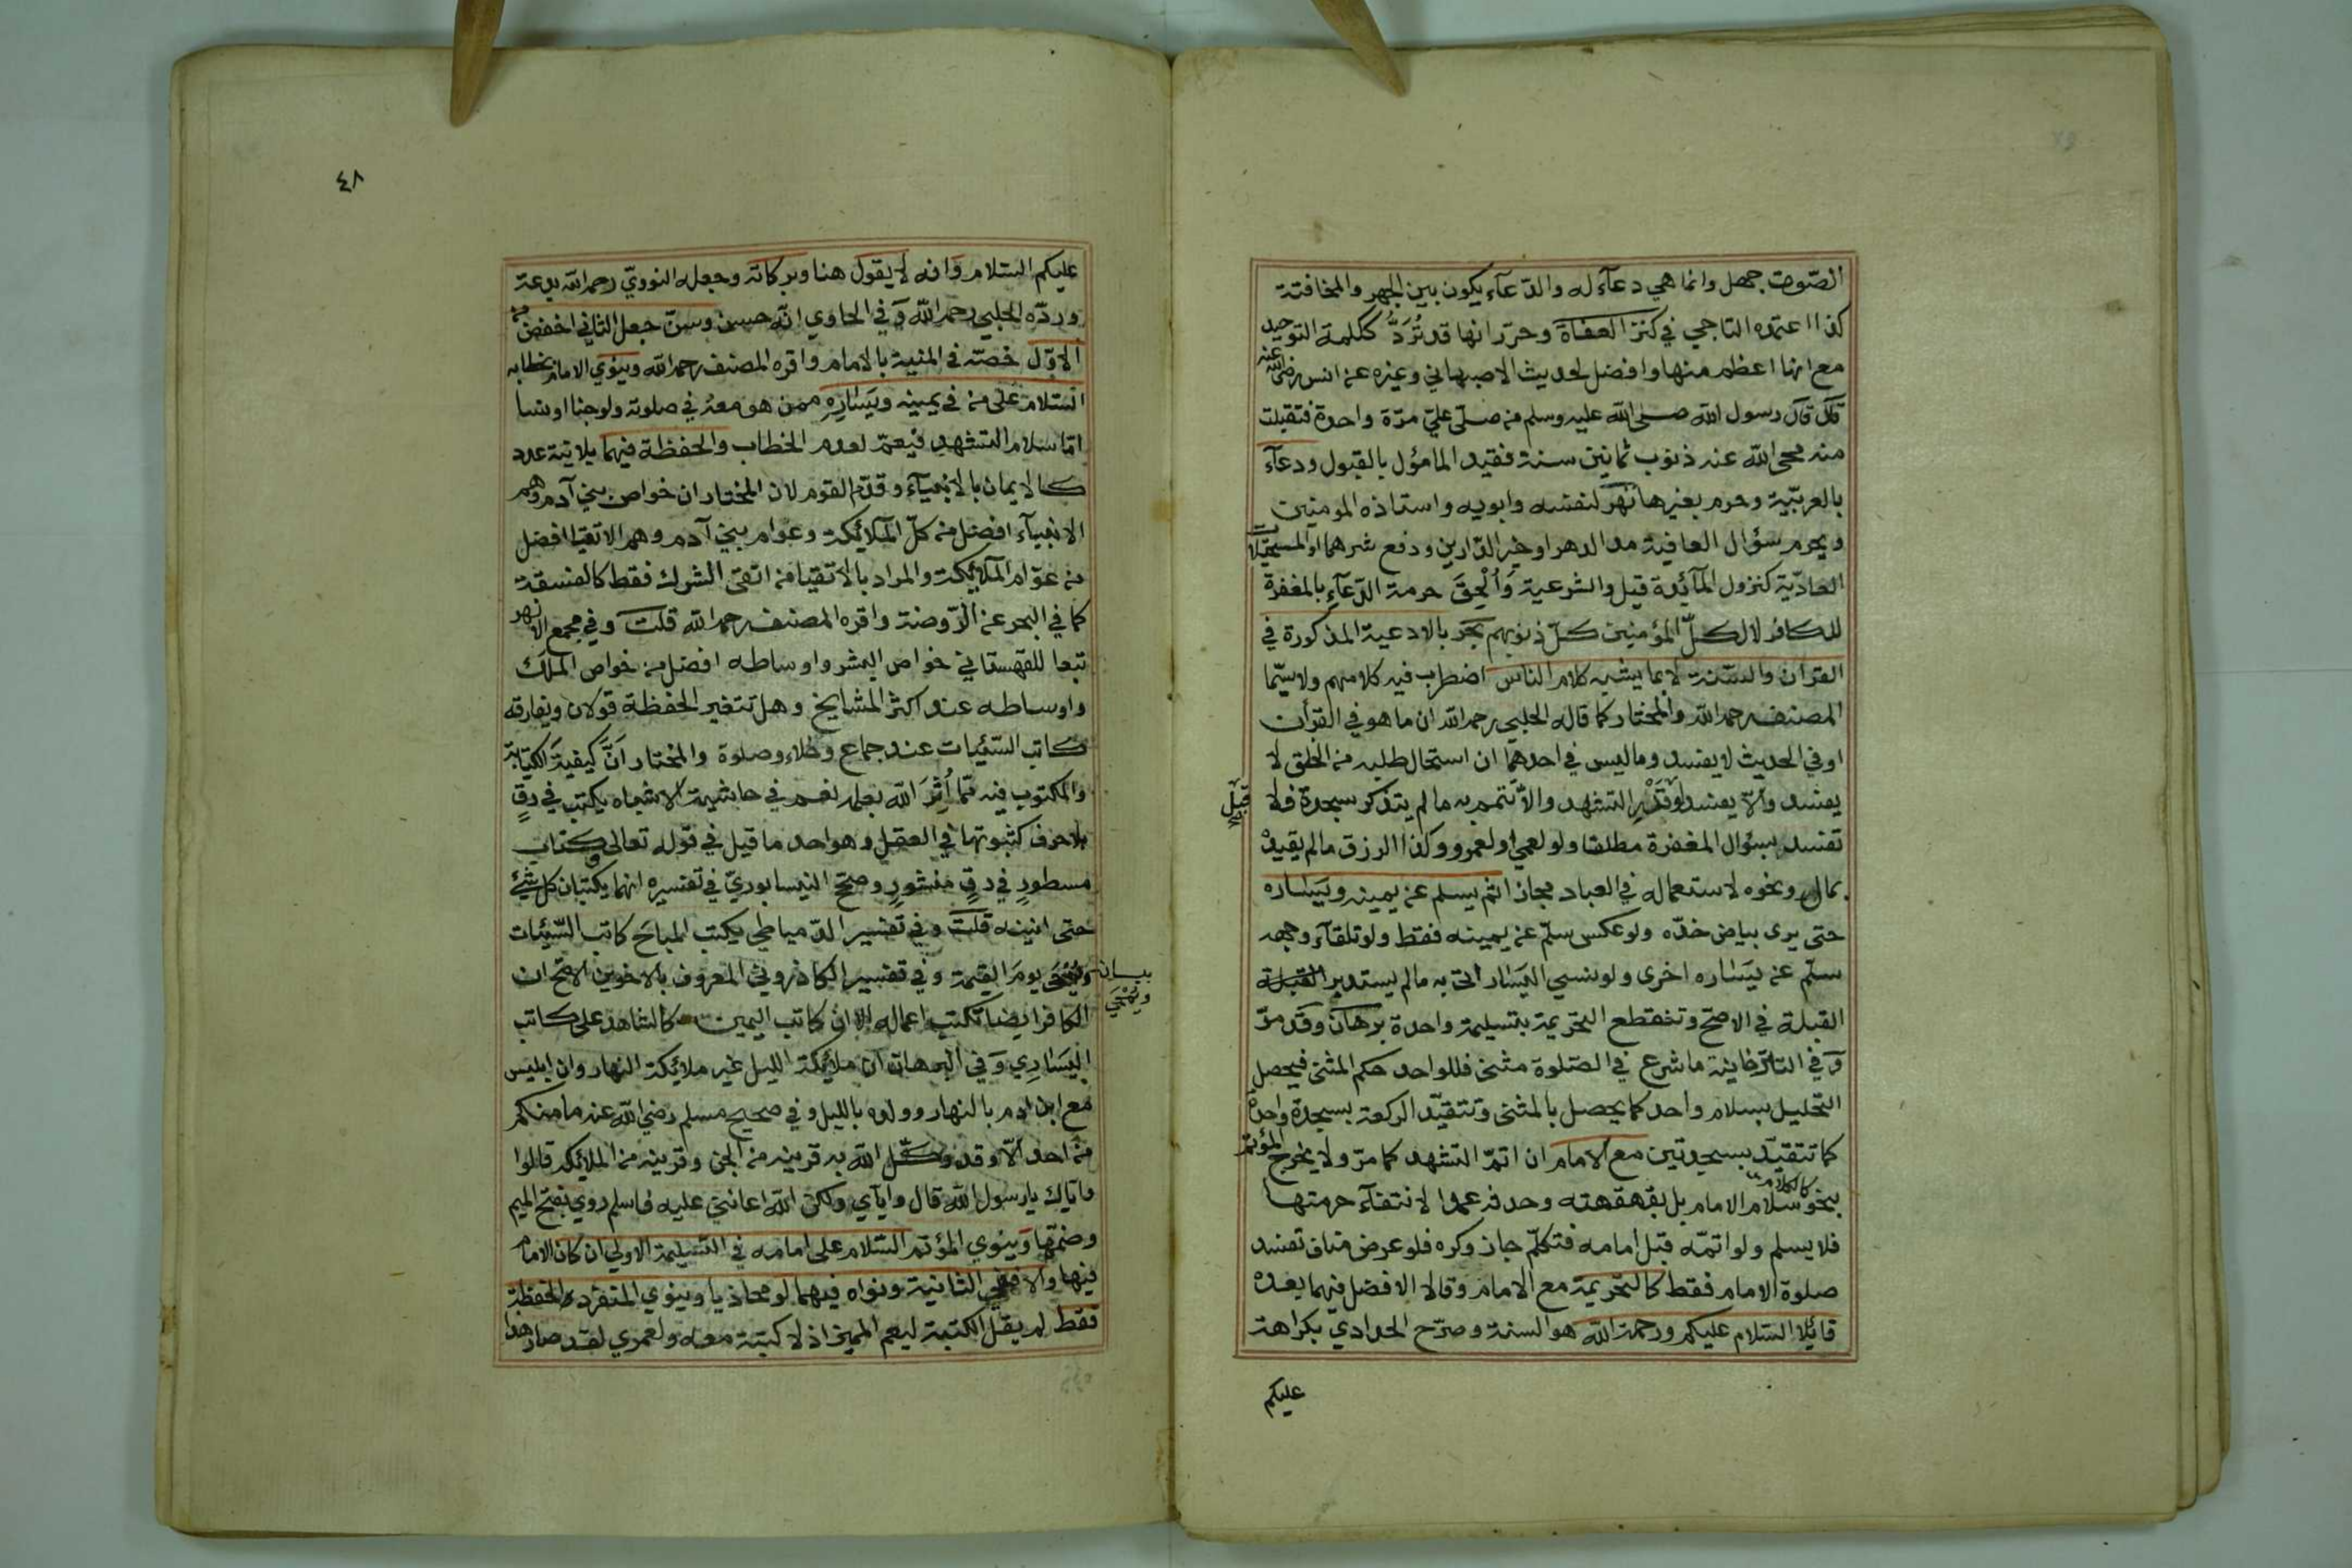 الصّوت جهل وانما هي دعآء له والدّعآء يكون بين الجهر والمخافتة
كذا اعتمده التاجي في كنز العفاة وحرّر انها قد تُرَدُّ ككلمة التوحيد
مع انها اعظم منها وافضل لحديث الاصبهاني وغيره عن انس رضي الله عنه
قال قال رسول الله صلى الله عليه وسلم من صلّى عليّ مرّة واحدة فتقبلت
منه محى الله عنه ذنوب ثمانين سنة فقيد المأمول بالقبول ودعآء
بالعربيّة وحرم بغيرها نهر لنفسه وابويه واستاذه المومنين
ويحرم سؤال العافية مدا الدهر او خير الدّارين ودفع شرهما او المستحيلات
العاديّة كنزول المآئدة قيل والشرعية وَالحقّ حرمة الدّعآء بالمغفرة
للكافر لا لكلّ المؤمنين كلّ ذنوبهم بحر بالادعية المذكورة في
القرآن والسّنة لا بما يشبه كلام الناس اضطرب فيه كلامهم ولا سيّما
المصنف رحمه الله والمختار كما قاله الحلبي رحمه الله ان ما هو في القرآن
او في الحديث لا يفسد وما ليس في احدهما ان استحال طلبه من الخلق لا
يفسد والّا يفسد لو قَدْرِ التشهد والّا تتم به ما لم يتذكر سجدة فلا
قبل
تفسد بسؤال المغفرة مطلقا ولو لعمي او لعمرو وكذا الرزق ما لم يقيدْ
بمال ونحوه لاستعماله في العباد مجازا ثم يسلم عن يمينه ويساره
حتى يرى بياض خدّه ولو عكس سلّم عن يمينه فقط ولو تلقآء وجهه
سلّم عن يساره اخرى ولو نسي اليسار اتى به ما لم يستدبر القبلة
القبلة في الاصحّ وتنقطع التحريمة بتسليمة واحدة برهان وقد مرّ
وَفي التاترخانية ما شرع في الصّلوة مثنى فللواحد حكم المثنى فيحصل
التحليل بسلام واحد كما يحصل بالمثنى وتتقيّد الركعة بسجدة واحدة
كما تتقيّد بسجدتين مع الامام ان اتمّ التشهد كما مرّ ولا يخرج المؤتم
بنحو سلام الامام بل بقهقهته وحدثه عمدا لانتفآء حرمتها
كالكلام
فلا يسلم ولو اتمّه قبل امامه فتكلّم جاز وكره فلو عرض مناف تفسد
صلوة الامام فقط كالتحريمة مع الامام وقالا الافضل فيهما بعده
قائلا السّلام عليكم ورحمة الله هو السنة وصرّح الحدادي بكراهة
عليكم
٤٨
عليكم السّلام وَانه لا يقول هنا وبركاته وجعله النوويّ رحمه الله بدعة
وردّه الحلبي رحمه الله وَفي الحاوي انّه حسن وسنّ جعل الثاني اخفض من
الاوّل خصّه في المنية بالامام واقره المصنف رحمه الله وينوي الامام بخطابه
السّلام على من في يمينه ويساره ممن هو معه في صلوته ولو جنا او نسا
امّا سلام التشهد فيعمّ لعدم الخطاب والحفظة فيهما بلا نية عدد
كالايمان بالانبيآء وقدّم القوم لان المختار ان خواص بني آدم وهم
الانبيآء افضل من كلّ الملآئكة وعوام بني آدم وهم الاتقيا افضل
من عوّام الملآئكة والمراد بالاتقيا من اتقى الشرك فقط كالفسقة
كما في البحر عن الرّوضة واقره المصنف رحمه الله قلت وفي مجمع الانهر
تبعا للقهستاني خواص البشر واوساطه افضل من خواص الملك
واوساطه عند اكثر المشايخ وهل تتغير الحفظة قولان ويفارقه
كاتب السّيّئات عند جماع وخلاء وصلوة والمختار اَنَّ كيفية الكتابة
والمكتوب فيه ممّا اُثِرَ الله بعلمه نعم في حاشية الاشباه يكتب في رقٍ
بلا حرف كثبوتها في العقل وهو احد ما قيل في قوله تعالى وكتاب
مسطورٍ في رقٍ منشورٍ وصحّح النيسابوريّ في تفسيره انهما يكتبان كل شيئ
حتى انينه قلت وفي تفسير الدّمياطي يكتب المباحَ كاتب السّيّئات
ويُمْحَى يومَ القيٰمة وفي تفسير الكازروني المعروف بالاخوين الاصح ان
بيان ويُمْحَى
الكافر ايضا تكتب اعماله الا ان كاتب اليمين كالشاهد على كاتب
اليَسَارِي وَفي البرهان ان ملائكة الليل غير ملائكة النهار وان ابليس
مع ابن ادم بالنهار وولده بالليل وفي صحيح مسلم رضي الله عنه ما منكم
من احد الّا وقد وكّل الله به قرينه من الجن وقرينه من الملائكة قالوا
واياك يا رسول الله قال وايآي ولكن الله اعانني عليه فاسلم روي بفتح الميم
وضمّها وَينوي المؤتم السّلام على امامه في التسليمة الاولى ان كان الامام
فيها والا ففي الثانية ونواه فيهما لو محاذيا وينوي المنفرد الحفظة
فقط لم يقل الكتبة ليعم المميز اذ لا كتبة معه ولعمري لقد صار هذا